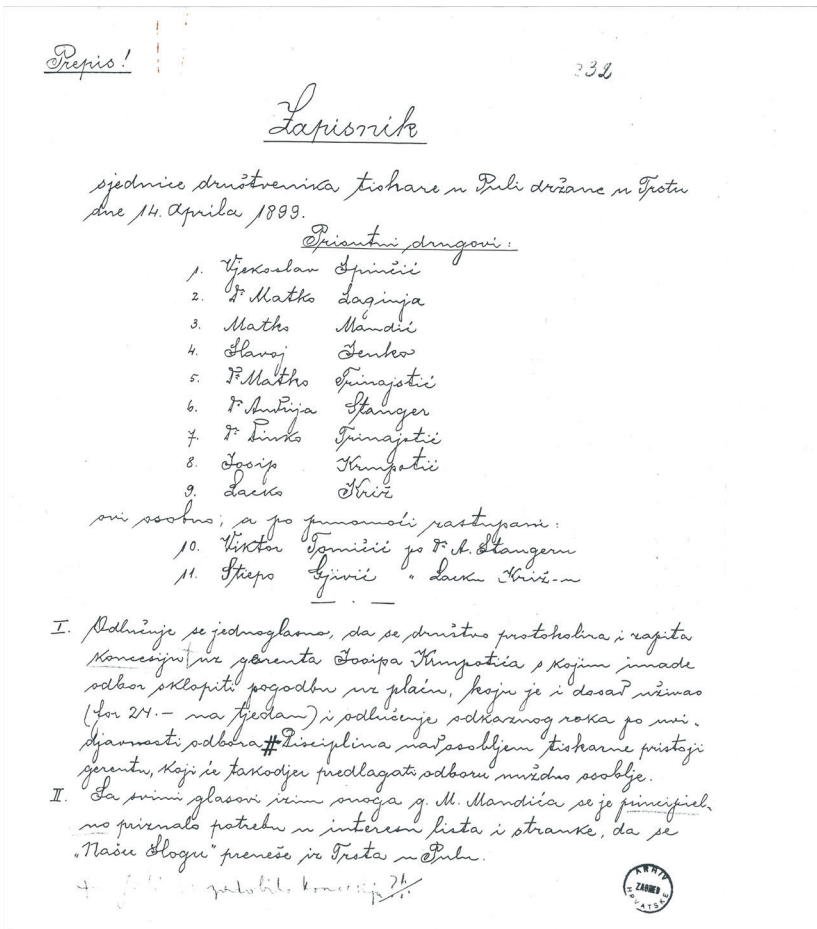 Prepis!
332
Zapisnik
sjednice društvenika tiskare u Puli držane u Trstu
dne 14. Aprila 1899.
Prisutni drugovi:
1. Vjekoslav Spinčić
2. Dr Matko Laginja
3. Matko Mandić
4. Slavoj Jenko
5. Dr Matko Trinajstić
6. Dr Andrija Stanger
7. Dr Dinko Trinajstić
8. Josip Krmpotić
9. Lacko Križ
ovi osobno; a po punomoći zastupani:
10. Viktor Tomičić po Dr A. Stangeru
11. Stiepo Gjivić " Lacku Križ-u
I. Odlučuje se jednoglasno, da se društvo protokolira i zapita
koncesiju uz gerenta Josipa Krmpotića s kojim imade
odbor sklopiti pogodbu uz plaću, koju je i dosad uživao
(for 24.- na tjedan) i odlučenje odkaznog roka po uvi-
djavnosti odbora # Disciplina nad osobljem tiskarne pristoji
gerentu, koji će takodjer predlagati odboru nuždno osoblje.
II. Sa svimi glasovi izim onoga g. M. Mandića se je principiel-
no priznalo potrebu u interesu lista i stranke, da se
„Našu Slogu" preneše iz Trsta u Pulu.
koncesiju
ARHIV HRVATSKE ZAGREB